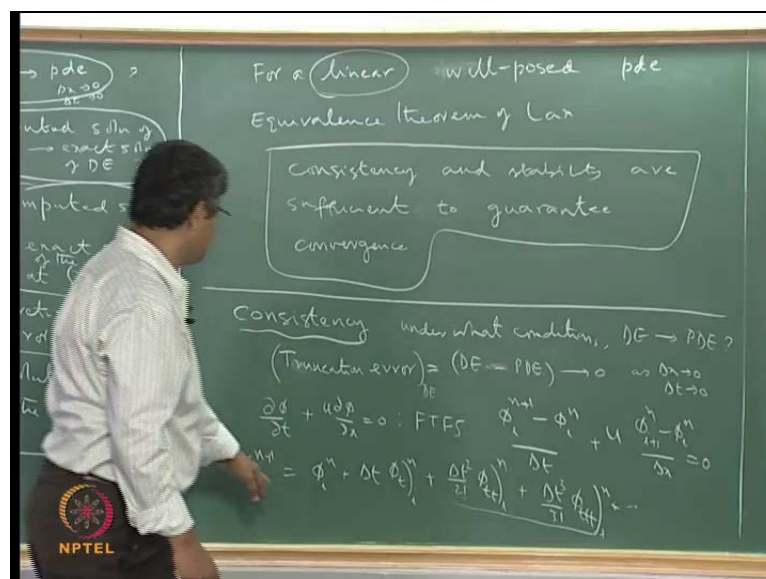 → pde ?
Δx→0
Δt→0
soln of
→ exact soln
of DE
mputed s
exact
of the
at (
For a linear well-posed pde
Equivalence theorem of Lax
Consistency and stability are
sufficient to guarantee
convergence
Consistency under what condition, DE → PDE?
(Truncation error)_DE = (DE - PDE) → 0 as Δx→0
Δt→0
∂φ/∂t + u∂φ/∂x = 0 : FTFS (φ_i^{n+1} - φ_i^n)/Δt + u (φ_{i+1}^n - φ_i^n)/Δx = 0
n+1 = φ_i^n + Δt φ_t)_i^n + Δt²/2! φ_tt)_i^n + Δt³/3! φ_ttt)_i^n + ..
NPTEL